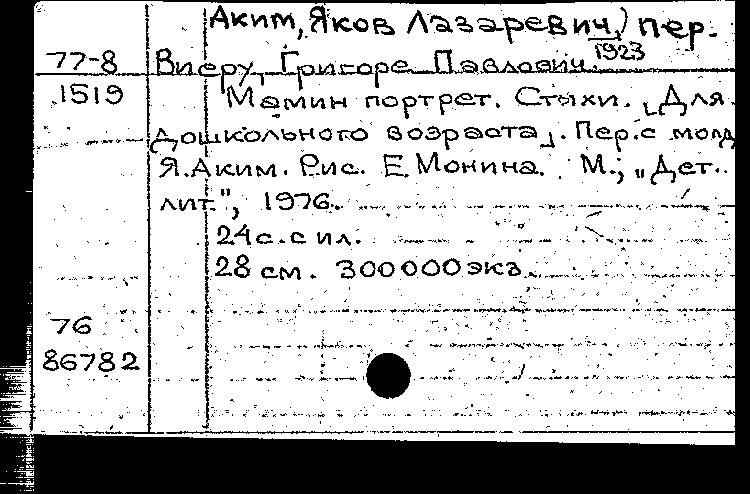 Аким, Яков Лазаревич, пер.
1923
77-8 Виеру, Григоре Павлович.
1519 Мамин портрет. Стихи. [Для
дошкольного возраста]. Пер. с молд
Я. Аким. Рис. Е Монина. М., "Дет.
лит.", 1976.
24 с. с ил.
28 см. 300000 экз.
76
86782